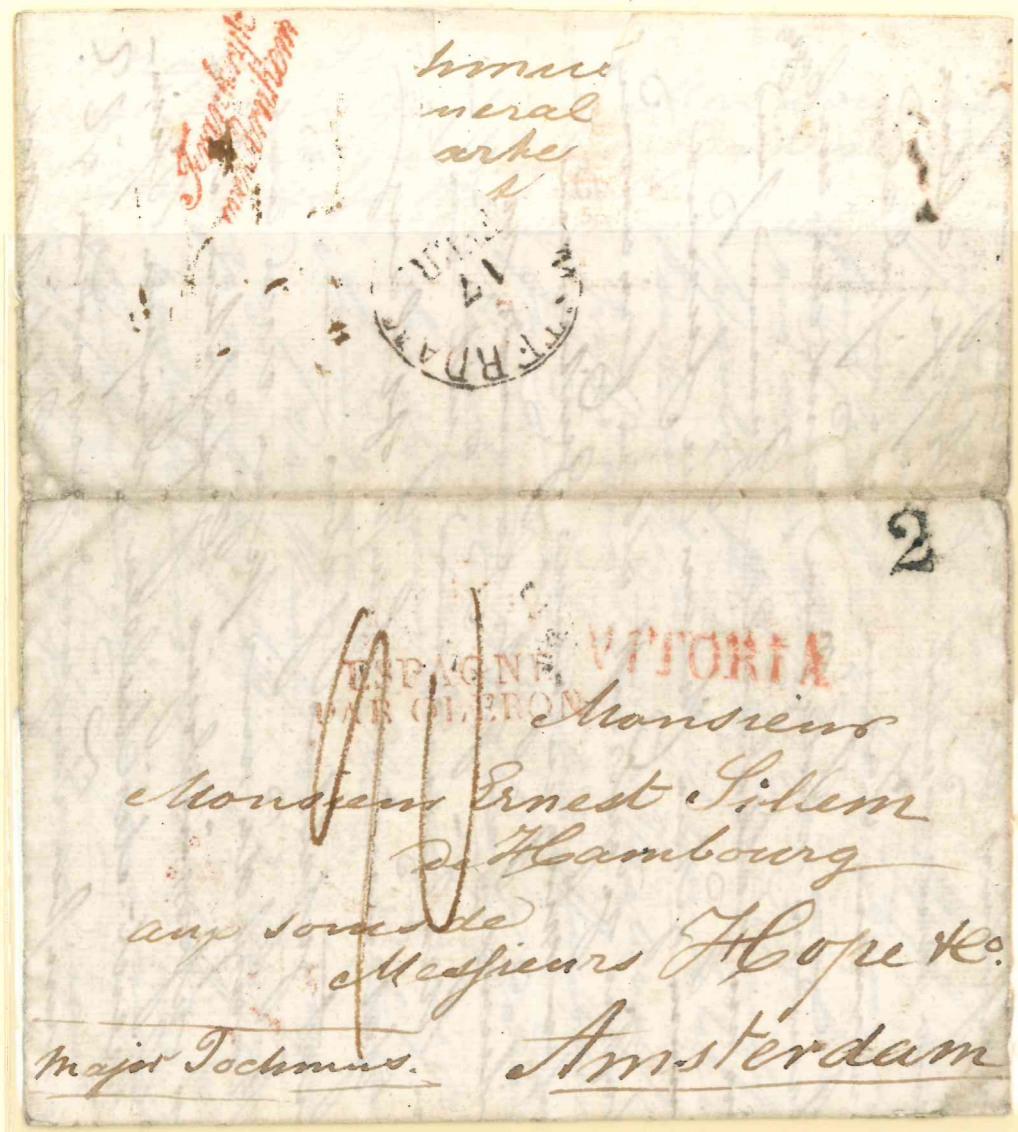 Frankryk
over Arnhem
neral
17
2
VITORIA
ESPAGNE
PAR OLERON
Monsieur
Monsieur Ernest Sillem
de Hambourg
aux soins de
Messieurs Hope & Co.
Amsterdam
Major Jochmus.